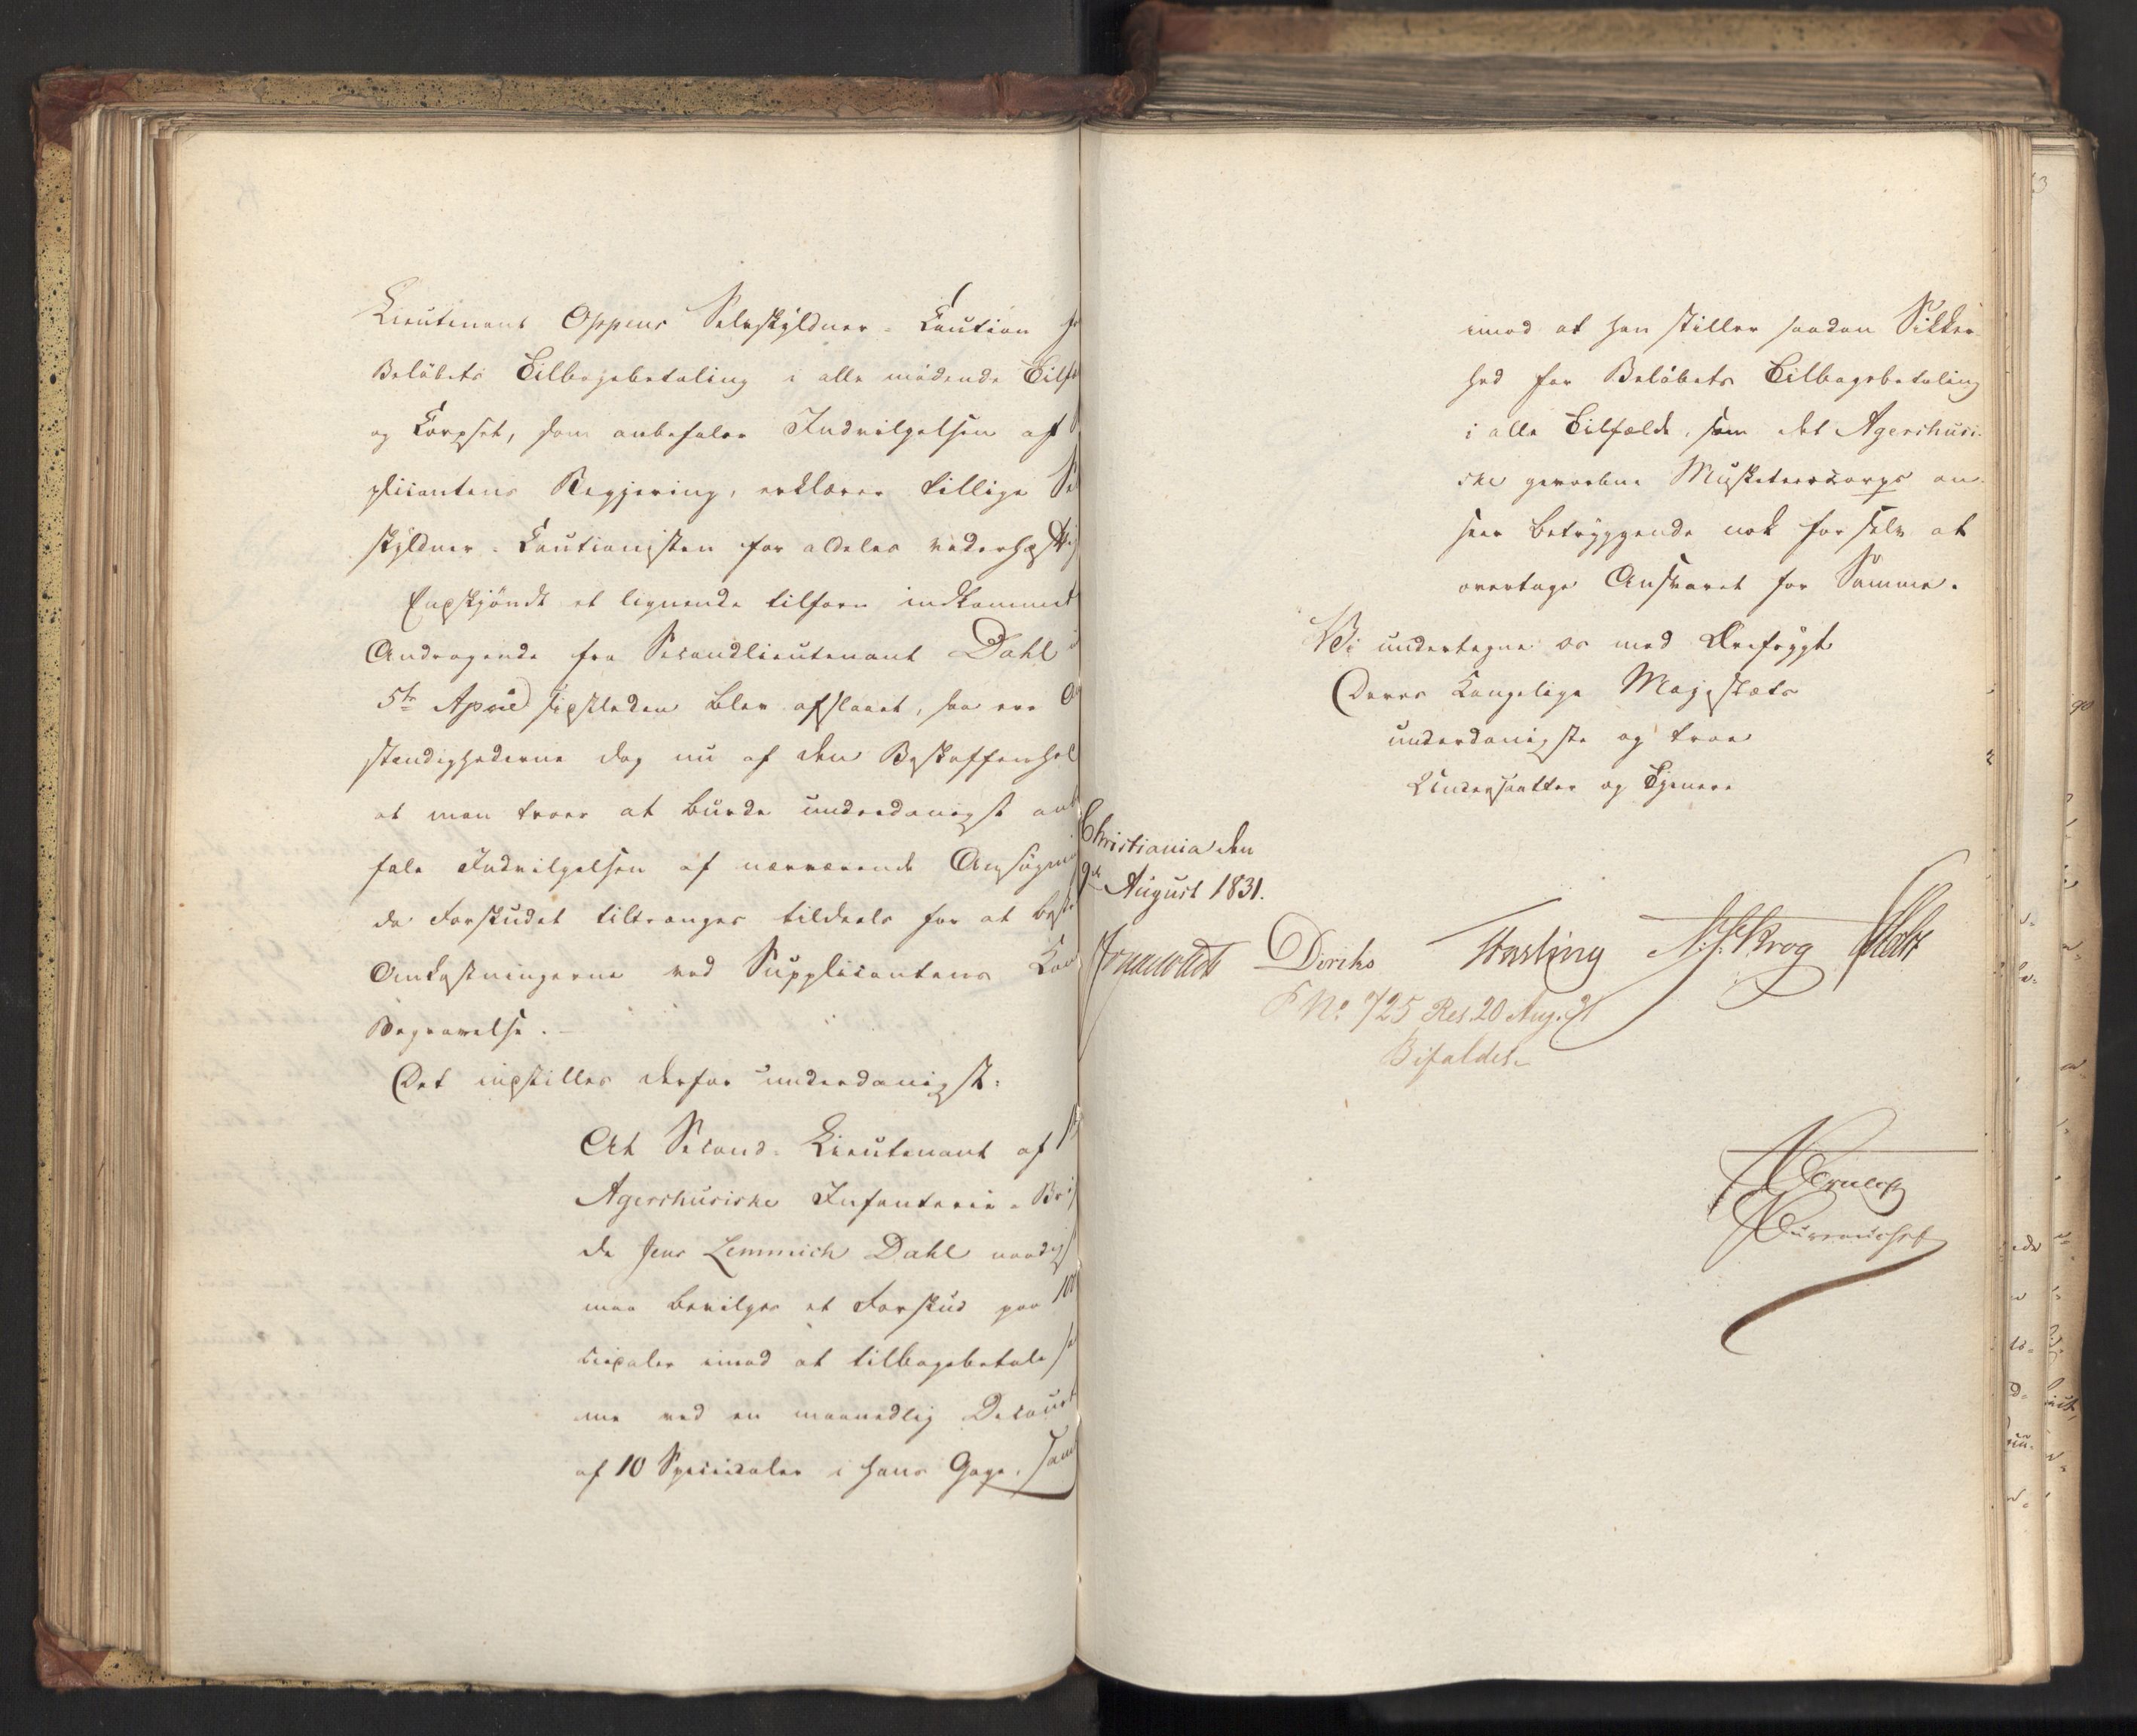 Lieutenant Oppens Selvskyldner-Caution
Beløbets Tilbagebetaling i alle mødende Tilfæ
og Corpset, som anbefaler Indvilgelsen af
plicantens Begjering, erklærer tillige Se
skyldner-Cautionisten for aldeles vederhæftig
Enskjøndt et lignende tilforn indkommet
Andragende fra Secondlieutenant Dahl
5te April sidstleden blev afslaaet, saa ere
stændighederne dog nu af den Beskaffenhed
at man troer at burde underdanigst anb
fale Indvilgelsen af nærværende Ansøgni
da Forskudet tiltrænges tildeels for at bestr
Omkostningerne ved Supplicantens Kon
Begravelse.
Det indstilles derfor underdanigst:
At Second-Lieutenant af
Agershusiske Infanterie-Bri
de Jens Lemmich Dahl naadigst
maa bevilges et Forskud paa 100
ciedaler imod at tilbagebetale sa
me ved en maanedlig Decourt
af 10 Speciedaler i hans Gage, sam
imod at han stiller saadan Sikker-
hed for Beløbets Tilbagebetaling
i alle Tilfælde, som det Agershusi-
ske gevorbne Musketeercorps an-
seer betryggende nok for selv at
overtage Ansvaret for Samme.
Vi undertegne os med Ærefrygt
Deres Kongelige Majestæts
underdanigste og troe
Undersaatter og Tjenere
Christiania den
9de August 1831.
Diriks Fasting Krog Holst
No. 725 Res. 20 Aug. 31
Bifaldet.
Bureauchef